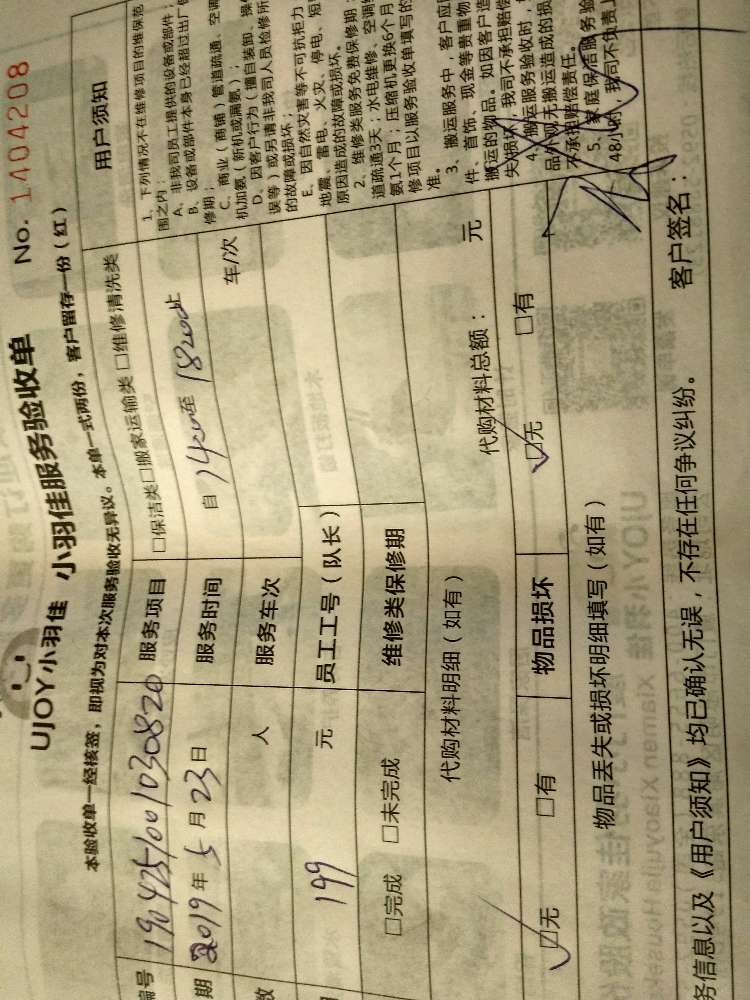 UJOY小羽佳 小羽佳服务验收单 No. 1404208
本验收单一经核签，即视为对本次服务验收无异议。本单一式两份，客户留存一份（红）
编号 1904251001030820 服务项目 □保洁类□搬家运输类□维修清洗类
期 2019年5月23日 服务时间 自 14:00至 18:00止
数 人 服务车次 车/次
199 元 员工工号（队长）
□完成 □未完成 维修类保修期
代购材料明细（如有） 代购材料总额： 元
☑无 □有 物品损坏 ☑无 □有
物品丢失或损坏明细填写（如有）
务信息以及《用户须知》均已确认无误，不存在任何争议纠纷。 客户签名：
用户须知
1、下列情况不在维修项目的维保范
围之内：
A、非我司员工提供的设备或部件；
B、设备或部件本身已经超过出厂
修期；
C、商业（商铺）管道疏通、空调
机加氨（新机或漏氨）；
D、因客户行为（擅自装卸、操
误等）或另请非我司人员检修所
的故障或损坏；
E、因自然灾害等不可抗拒力
地震、雷电、火灾、停电、短
原因造成的故障或损坏。
2、维修类服务免费保修期：
道疏通3天；水电维修、空调
氨1个月；压缩机更换6个月
修项目以服务验收单填写的
准。
3、搬运服务中，客户应
件、首饰、现金等贵重物
搬运的物品。如因客户造
失/损坏，我司不承担赔偿
4、搬运服务验收时，
品外观无搬运造成的损
不承担赔偿责任。
5、家庭保洁服务验
48小时，我司不负责上